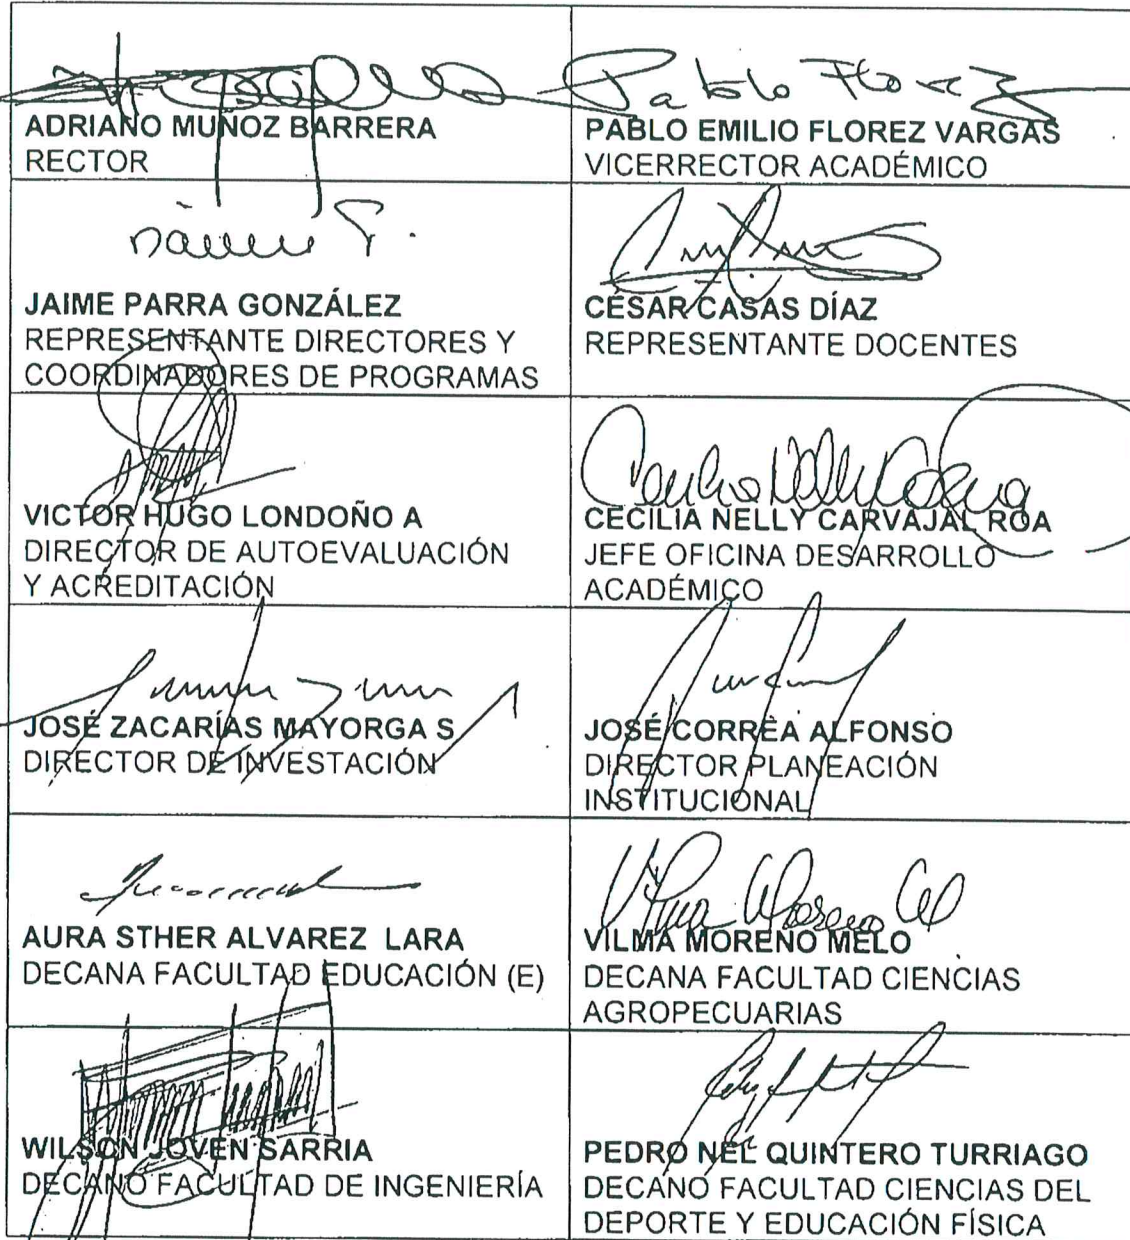 Pablo Florez
ADRIANO MUÑOZ BARRERA
RECTOR
PABLO EMILIO FLOREZ VARGAS
VICERRECTOR ACADÉMICO
JAIME PARRA GONZÁLEZ
REPRESENTANTE DIRECTORES Y
COORDINADORES DE PROGRAMAS
CÉSAR CASAS DÍAZ
REPRESENTANTE DOCENTES
VICTOR HUGO LONDOÑO A
DIRECTOR DE AUTOEVALUACIÓN
Y ACREDITACIÓN
CECILIA NELLY CARVAJAL ROA
JEFE OFICINA DESARROLLO
ACADÉMICO
JOSÉ ZACARÍAS MAYORGA S
DIRECTOR DE INVESTACIÓN
JOSÉ CORREA ALFONSO
DIRECTOR PLANEACIÓN
INSTITUCIONAL
AURA STHER ALVAREZ LARA
DECANA FACULTAD EDUCACIÓN (E)
Vilma Moreno
VILMA MORENO MELO
DECANA FACULTAD CIENCIAS
AGROPECUARIAS
WILSON JOVEN SARRIA
DECANO FACULTAD DE INGENIERÍA
PEDRO NEL QUINTERO TURRIAGO
DECANO FACULTAD CIENCIAS DEL
DEPORTE Y EDUCACIÓN FÍSICA